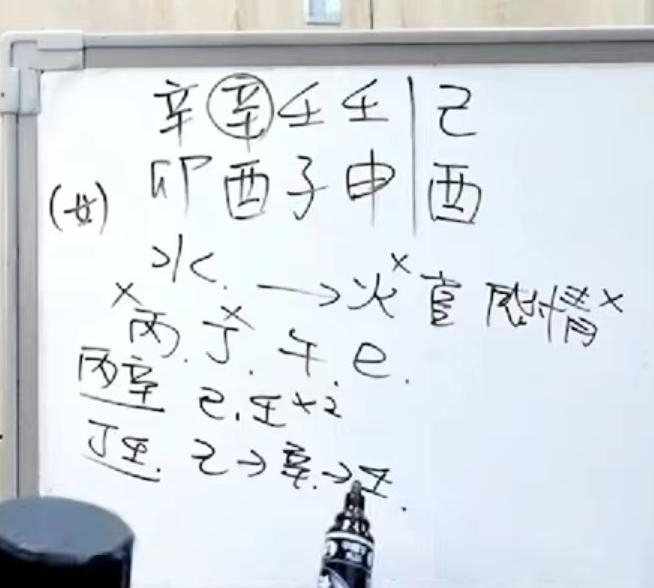 辛 辛 壬 壬 | 己
(女) 卯 酉 子 申 | 酉
水 → 火 × 官 感情 ×
× 丙. 丁 ×. 午. 巳.
丙辛 己. 壬 × 2
丁壬. 己 → 辛. → 壬.